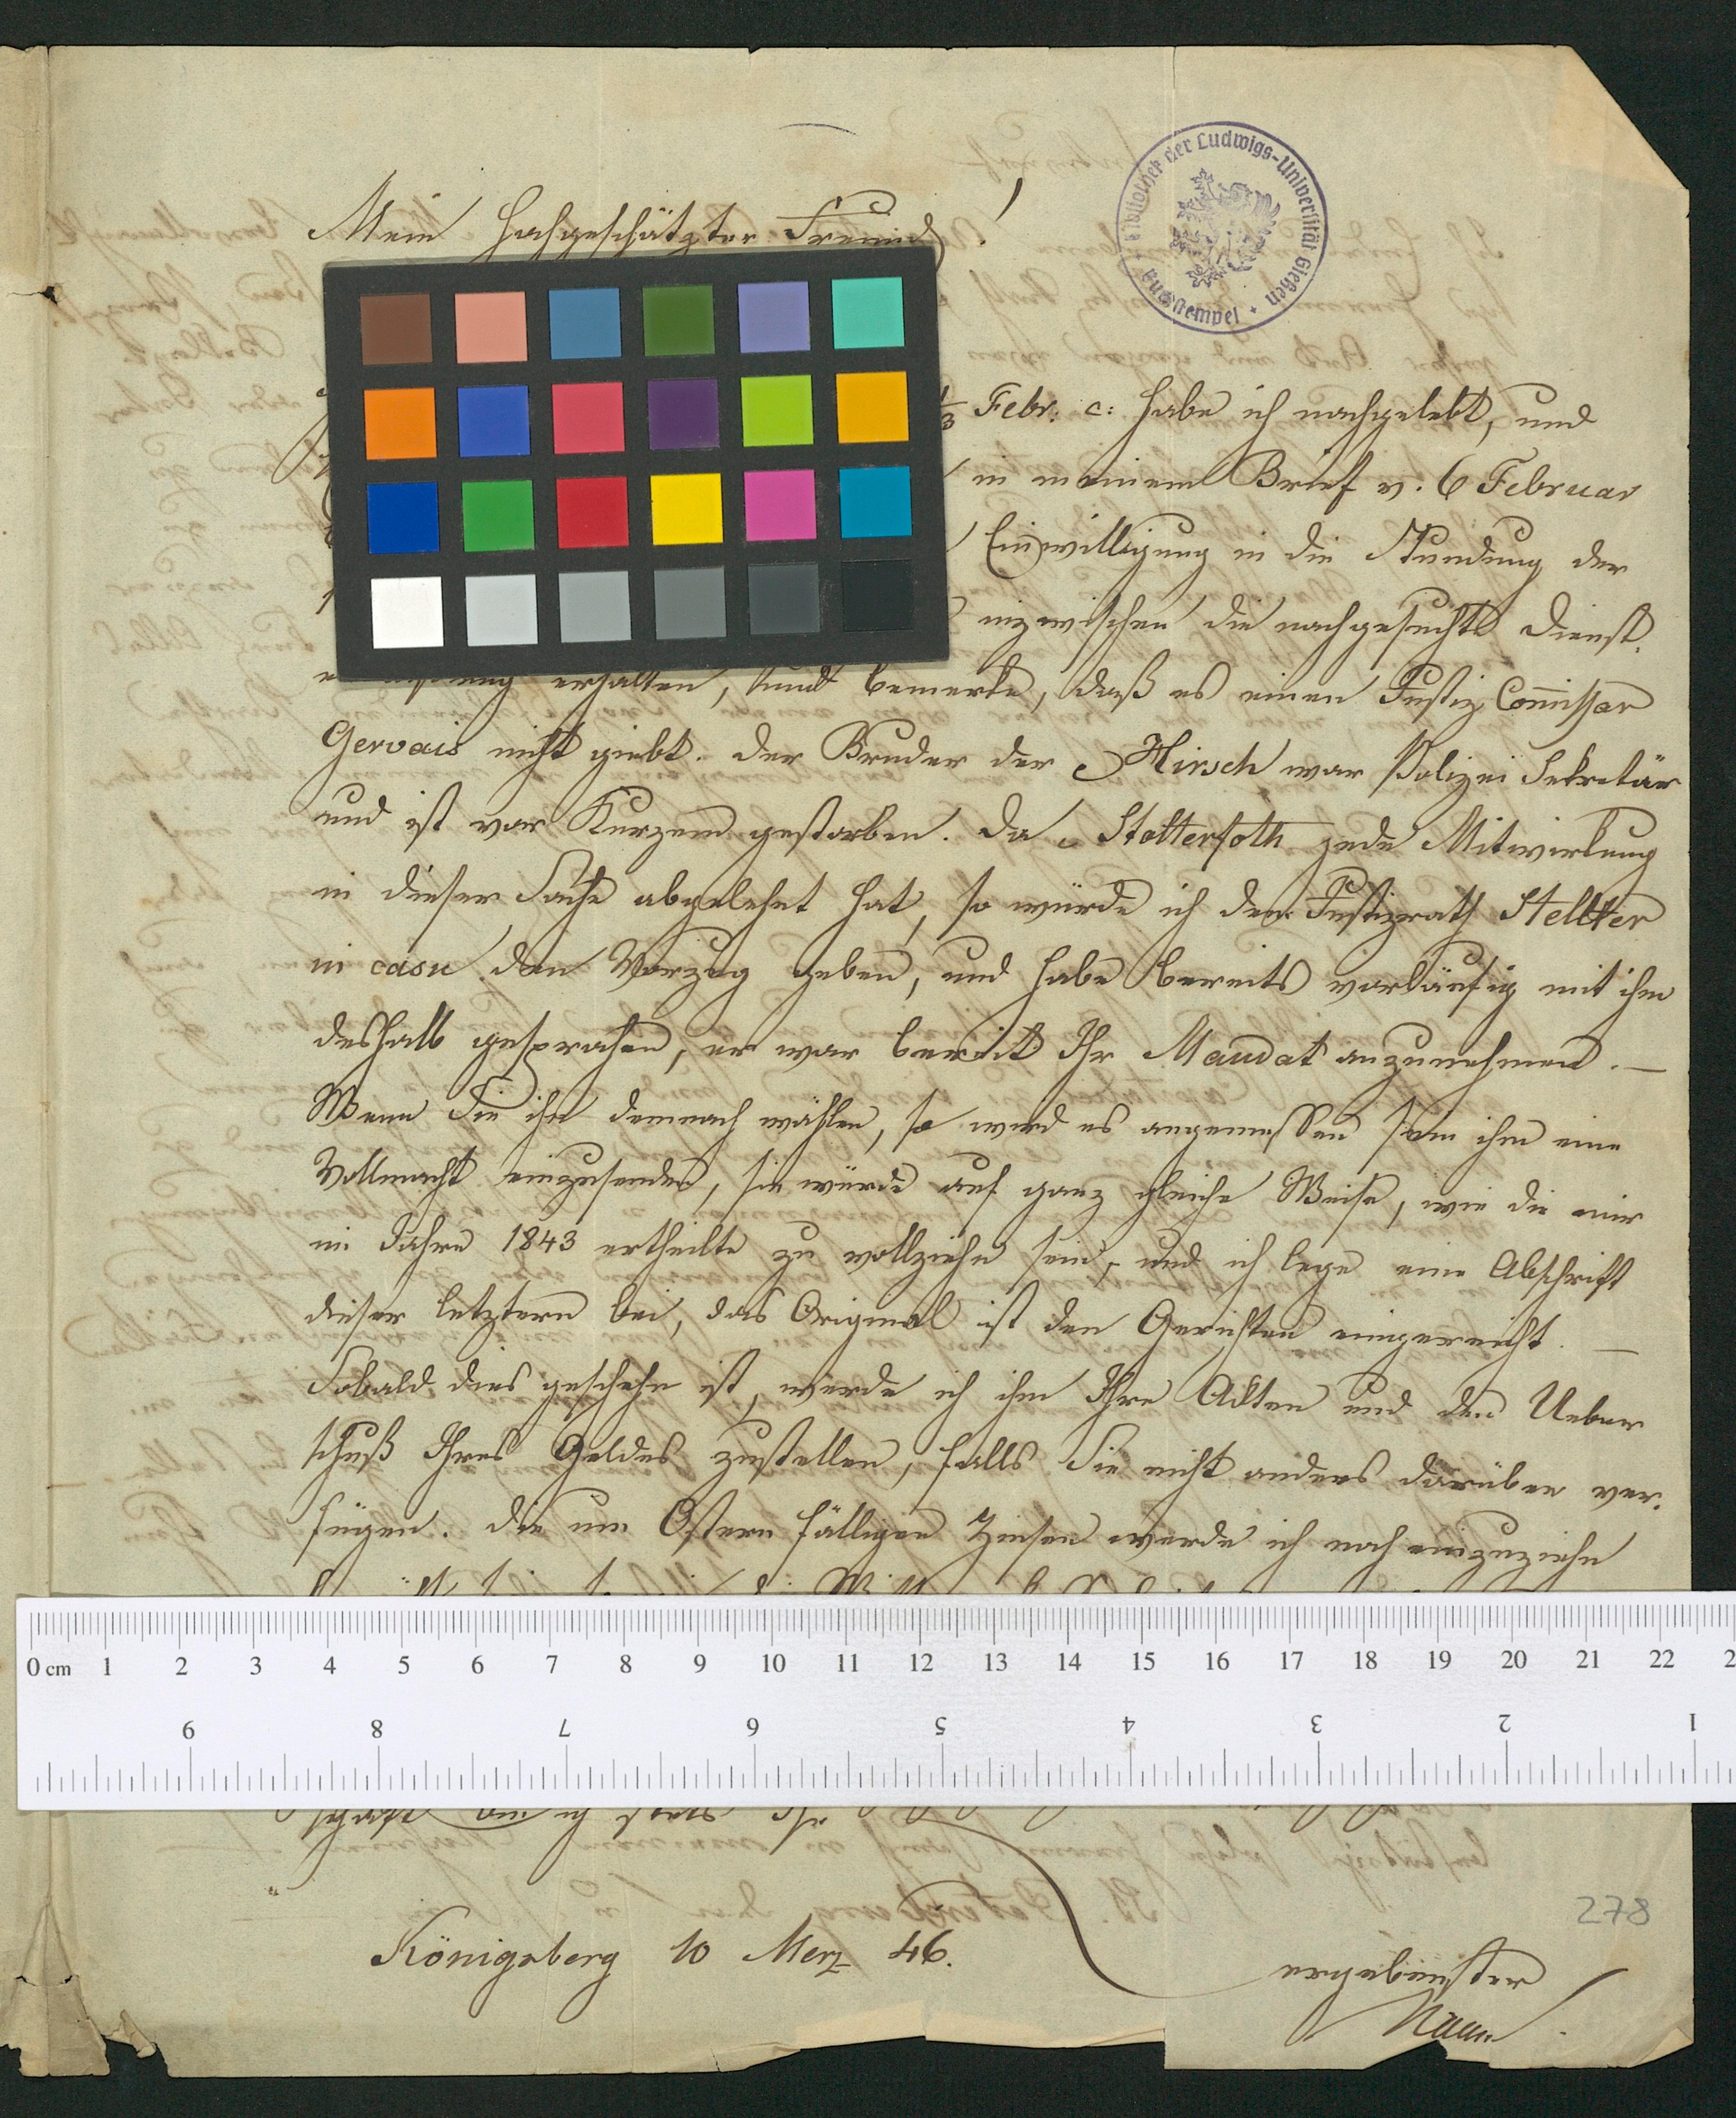 Mein hochgeschätzter Freund!
Bibliothek der Ludwigs-Universität Gießen
Febr. c: habe ich nachgelebt, und
in meinem Brief v. 6 Februar
Einwilligung in die Stundung der
inzwischen die nachgesuchte Dienst,
erhalten, und bemerke, daß es einen Justiz Commissar
Gervais nicht giebt. Der Bruder der Hirsch war Polizei Sekretär
und ist vor Kurzem gestorben. Da Stolterfoth jede Mitwirkung
in dieser Sache abgelehnt hat, so würde ich dem Justizrath Stellter
in casu den Vorzug geben, und habe bereits vorläufig mit ihm
deshalb gesprochen, er war bereit Ihr Mandat anzunehmen. —
Wenn Sie ihn demnach wählen, so wird es angemessen sein ihm eine
Vollmacht einzusenden, sie würde auf ganz gleiche Weise, wie die mir
im Jahre 1843 ertheilte zu vollziehn sein, und ich lege eine Abschrift
dieser letztern bei, das Original ist den Gerichten eingereicht. —
Sobald dies geschehn ist, werde ich ihm Ihre Akten und den Ueber
schuß Ihres Geldes zustellen, falls Sie nicht anders darüber ver.
fügen. Die um Ostern fälligen Zinsen werde ich noch einzuziehn
0 cm 1 2 3 4 5 6 7 8 9 10 11 12 13 14 15 16 17 18 19 20 21 22 2
9 8 7 6 5 4 3 2 1
schaft bin ich stets Ihr
278
Königsberg 10 Merz 46.
ergebenster